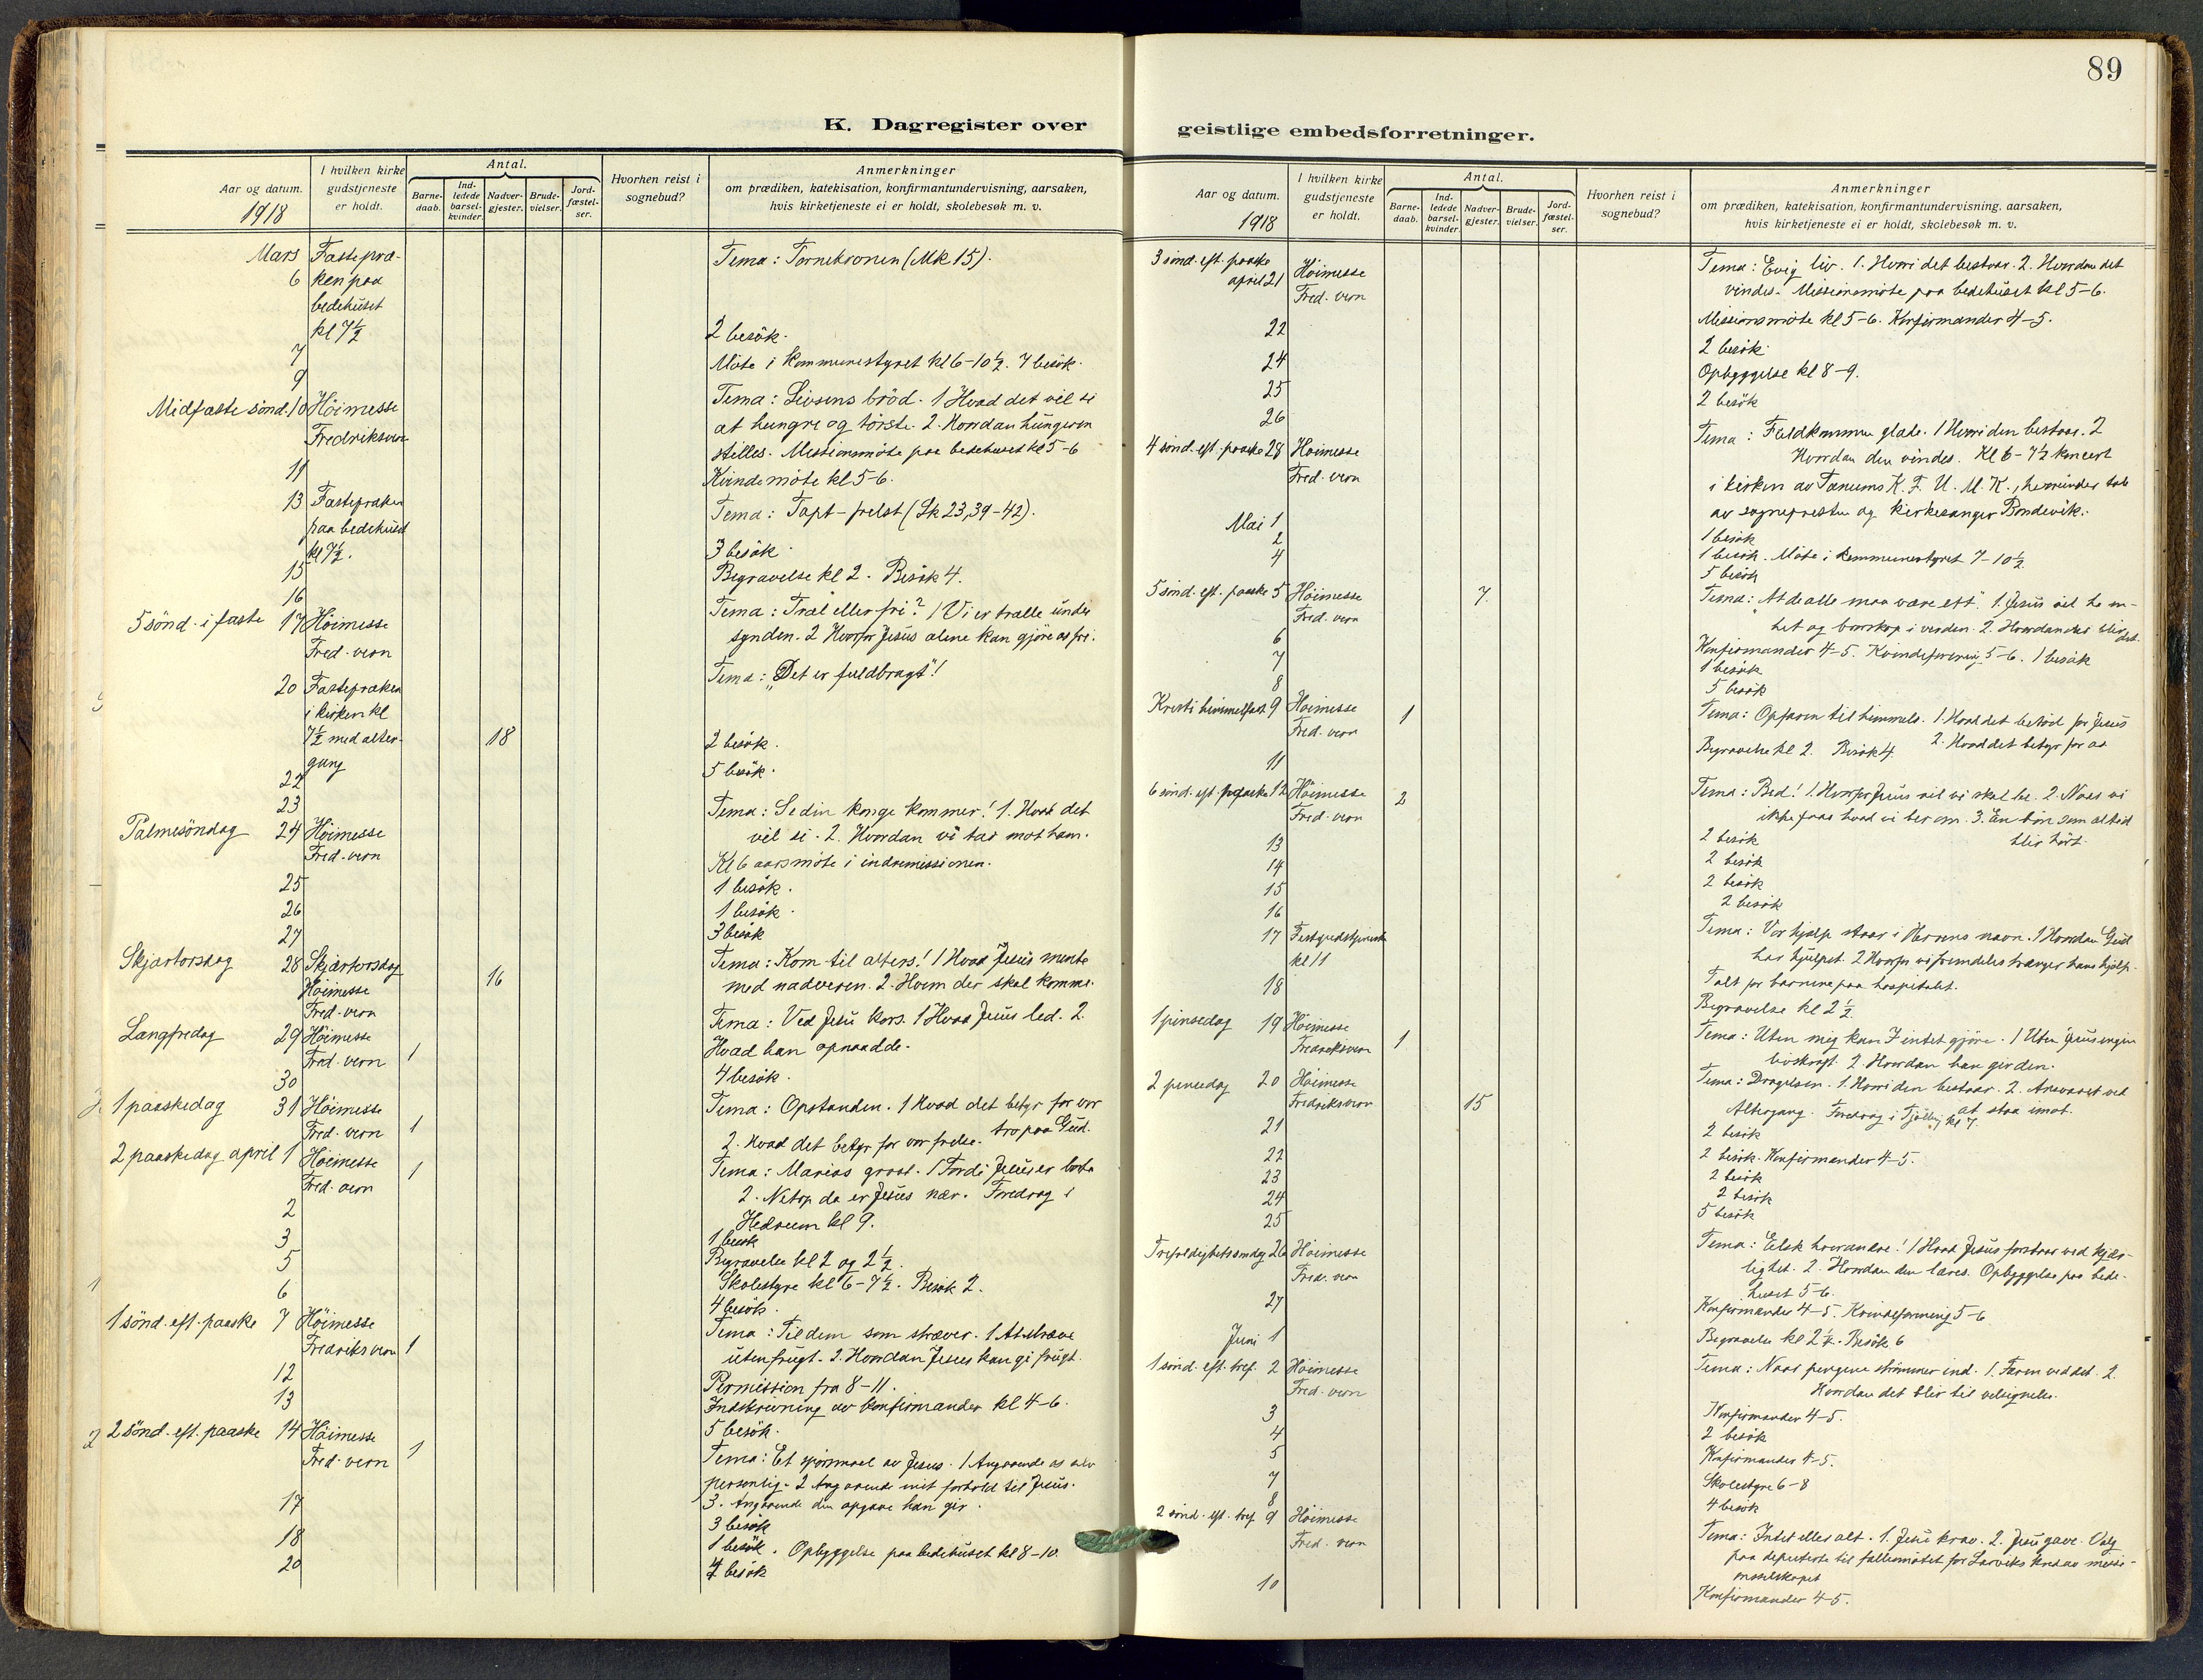 89
K. Dagregister over
geistlige embedsforretninger.
Aar og datum.
1918
I hvilken kirke
gudstjeneste
er holdt.
Antal.
Barne-
daab.
Ind-
ledede
barsel-
kvinder.
Nadver-
gjester.
Brude-
vielser.
Jord-
fæstel-
ser.
Hvorhen reist i
sognebud?
Anmerkninger
om prædiken, katekisation, konfirmantundervisning, aarsaken,
hvis kirketjeneste ei er holdt, skolebesøk m. v.
Mars Fastepræ- Tema: Tornekronen (Mk 15).
6 ken paa
bedehuset
kl 7½
7 2 besök.
9 Möte i kommunestyret kl 6-10½. 7 besök.
Midfaste sönd. 10 Höimesse Tema: Livsens bröd. 1 Hvad det vil si
Fredriksvern at hungre og törste. 2. Hvordan hungeren
stilles. Missionsmöte paa bedehuset kl 5-6
11 Kvindemöte kl 5-6.
13 Fastepræken Tema: Tapt - frelst (Lk 23,39-42).
paa bedehuset
kl 7½.
15 3 besök.
16 Begravelse kl 2. Besök 4.
5 sönd. i faste 17 Höimesse Tema: Træl eller fri? 1 Vi er trælle under
Fred. vern synden. 2 Hvorfor Jesus alene kan gjöre os fri.
20 Fastepræken Tema: "Det er fuldbragt"!
i kirken kl
7½ med alter- 18
gang
22 2 besök.
23 5 besök.
Palmesöndag 24 Höimesse Tema: Se din konge kommer! 1. Hvad det
Fred. vern vil si. 2. Hvordan vi tar mot ham.
Kl 6 aarsmöte i indremissionen.
25 1 besök.
26 1 besök.
27 3 besök
Skjærtorsdag 28 Skjærtorsdag Tema: Kom til alters! 1 Hvad Jesus mente
Höimesse 16 med nadveren. 2. Hvem der skal komme.
Fred. vern
Langfredag 29 Höimesse Tema: Ved Jesu kors. 1 Hvad Jesus led. 2.
Fred. vern 1 Hvad han opnaadde.
30 4 besök.
1 paaskedag 31 Höimesse Tema: Opstanden. 1 Hvad det betyr for vor
Fred. vern 1 tro paa Gud.
2. Hvad det betyr for vor frelse.
2 paaskedag april 1 Höimesse Tema: Marias graat. 1 Fordi Jesus er borte
Fred. vern 1 2. Netop da er Jesus nær. Foredrag i
Hedrum kl 9.
2 1 besök
3 Begravelse kl 2 og 2½.
5 Skolestyre kl 6-7½. Besök 2.
6 4 besök.
1 sönd. eft. paaske 7 Höimesse Tema: Til dem som stræver. 1 At stræve
Fredriksvern 1 uten frugt. 2. Hvordan Jesus kan gi frugt.
12 Permission fra 8-11.
13 Indskrivning av konfirmander kl 4-6.
5 besök.
2 sönd. eft. paaske 14 Höimesse Tema: Et spörsmaal av Jesus. 1 Angaaende os selv
Fred. vern 1 personlig. 2 Angaaende mit forhold til Jesus.
3. Angaaende den opgave han gir.
17 3 besök
18 1 besök. Opbyggelse paa bedehuset kl 8-10.
20 4 besök
Aar og datum.
1918
I hvilken kirke
gudstjeneste
er holdt.
Antal.
Barne-
daab.
Ind-
ledede
barsel-
kvinder.
Nadver-
gjester.
Brude-
vielser.
Jord-
fæstel-
ser.
Hvorhen reist i
sognebud?
Anmerkninger
om prædiken, katekisation, konfirmantundervisning, aarsaken,
hvis kirketjeneste ei er holdt, skolebesøk m. v.
3 sönd. eft. paaske Tema: Evig liv. 1. Hvori det bestaar. 2. Hvordan det
april 21 Höimesse vindes. Missionsmöte paa bedehuset kl 5-6.
Fred. vern
22 Missionsmöte kl 5-6. Konfirmander 4-5.
24 2 besök.
25 Opbyggelse kl 8-9.
26 2 besök
4 sönd. eft. paaske 28 Höimesse Tema: Fuldkommen glæde. 1 Hvori den bestaar. 2
Fred. vern Hvordan den vindes. Kl 6-7½ koncert
i kirken av Tanums K. F. U. M. K., herunder tale
av sognepresten og kirkesanger Bondevik.
Mai 1 1 besök
2 1 besök. Möte i kommunestyret 7-10½
4 5 besök
5 sönd. eft. paaske 5 Höimesse 7 Tema: "At de alle maa være ett". 1. Jesus vil ha en-
Fred. vern het og borskap i verden. 2. Hvordan det blir
6 Konfirmander 4-5. Kvindeforening 5-6. 1 besök
7 1 besök
8 5 besök
Kristi himmelfart 9 Höimesse 1 Tema: Opfaren til himmels. 1. Hvad det betöd for Jesus
Fred. vern 2. Hvad det betyr for os
11 Begravelse kl 2. Besök 4.
6 sönd. eft. paaske 12 Höimesse 2 Tema: Bed! 1. Hvorfor Jesus vil vi skal be. 2. Naar vi
Fred. vern ikke faar hvad vi ber om. 3. En bön som altid
blir hört.
13 2 besök
14 2 besök
15 2 besök
16 2 besök
17 Festgudstjeneste Tema: Vor hjælp staar i Herrens navn. 1 Hvordan Gud
kl 11 har hjulpet. 2 Hvorfor vi fremdeles trænger hans hjælp.
Talt for barnene paa hospitalet.
18 Begravelse kl 2½.
1 pinsedag 19 Höimesse Tema: Uten mig kan I intet gjöre. 1 Uten Jesus ingen
Fredriksvern 1 livskraft. 2 Hvordan han gir den.
2 pinsedag 20 Höimesse Tema: Dragelsen. 1. Hvori den bestaar. 2. Ansvaret ved
Fredriksvern 15 at staa imot.
Altergang. Foredrag i Tjölling kl 7.
21 2 besök
22 2 besök. Konfirmander 4-5.
23 2 besök
24 2 besök
25 5 besök
Trefoldighetssöndag 26 Höimesse Tema: Elsk hverandre! 1 Hvad Jesus forstaar ved kjær-
Fred. vern lighet. 2. Hvordan den læres. Opbyggelse paa bede-
huset 5-6.
27 Konfirmander 4-5. Kvindeforening 5-6
Juni 1 Begravelse kl 2½. Besök 6
1 sönd. eft. tref. 2 Höimesse Tema: Naar pengene strömmer ind. 1. Faren ved det. 2.
Fred. vern Hvordan det blir til velsignelse.
3 Konfirmander 4-5.
4 2 besök
5 Konfirmander 4-5.
7 Skolestyre 6-8
8 4 besök
2 sönd. eft. tref. 9 Höimesse Tema: Intet eller alt. 1. Jesu krav. 2. Jesu gave. Valg
Fred. vern paa deputerte til fællesmötet for Larviks kreds av missi-
onsselskapet
10 Konfirmander 4-5.